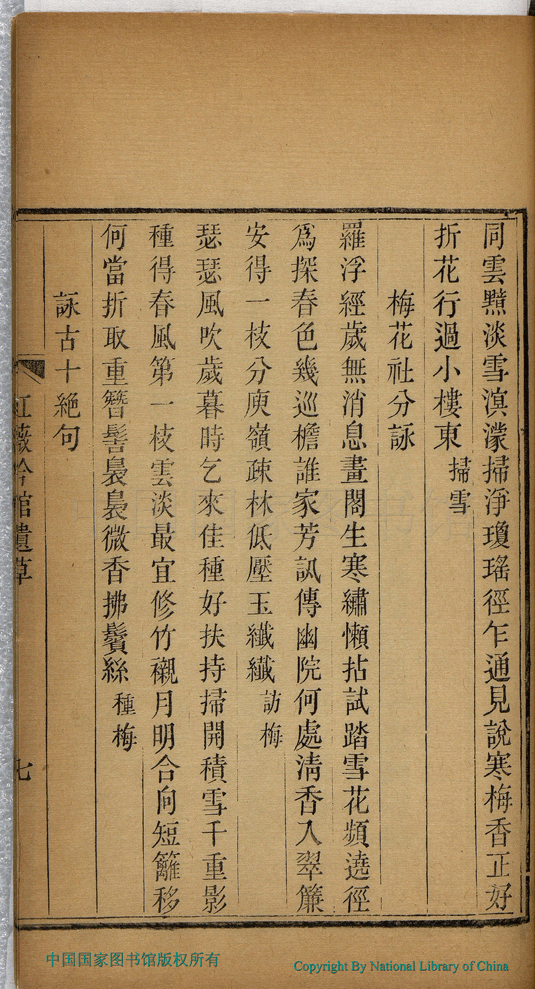 同雲黯淡雪溟濛掃淨瓊瑤徑乍通見說寒梅香正好
折花行過小樓東掃雪
梅花社分詠
羅浮經歲無消息畫閣生寒繡懶拈試踏雪花頻遶徑
爲探春色幾巡檐誰家芳訊傳幽院何處清香入翠簾
安得一枝分庾嶺疎林低壓玉纖纖訪梅
瑟瑟風吹歲暮時乞來佳種好扶持掃開積雪千重影
種得春風第一枝雲淡最宜修竹襯月明合向短籬移
何當折取重簪髻裊裊微香拂鬢絲種梅
詠古十絕句
紅薇吟館遺草
七
中国国家图书馆版权所有
Copyright By National Library of China